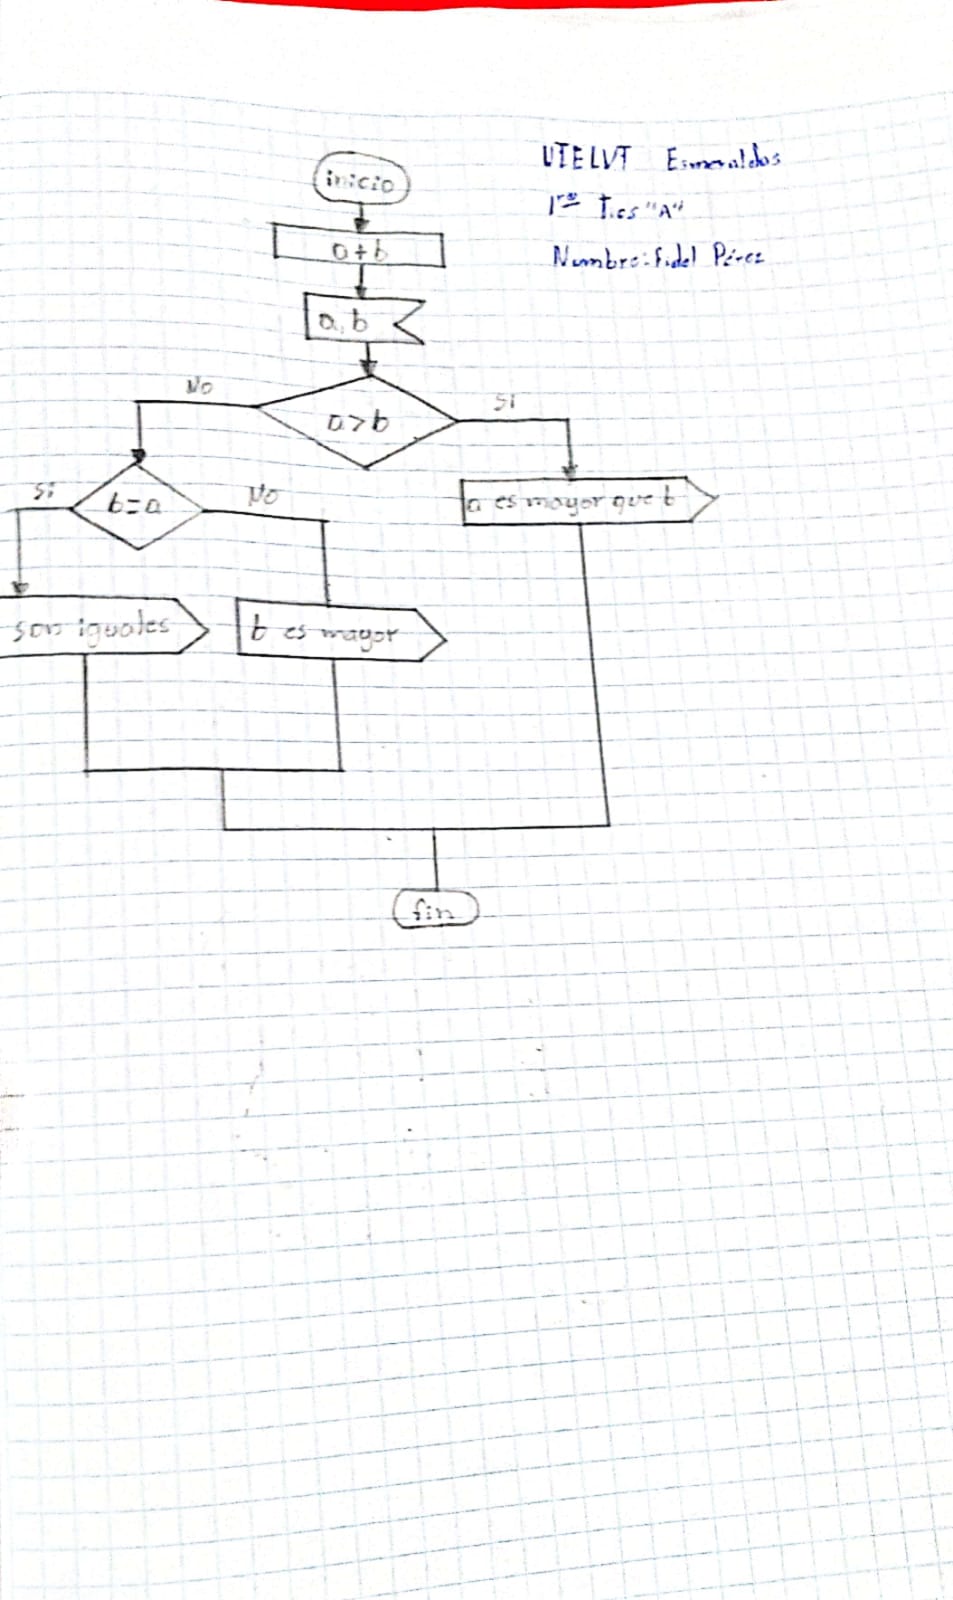 UTELVT Esmeraldas
1ro Tics "A"
Nombre: Fidel Pérez
inicio
a+b
a, b
a>b
No
Si
b=a
Si
No
a es mayor que b
son iguales
b es mayor
fin